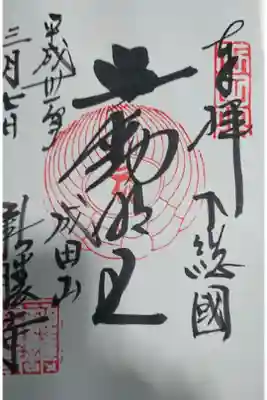 奉拝
下総國
不動明王
成田山
平成卅一年
三月七日
新勝寺